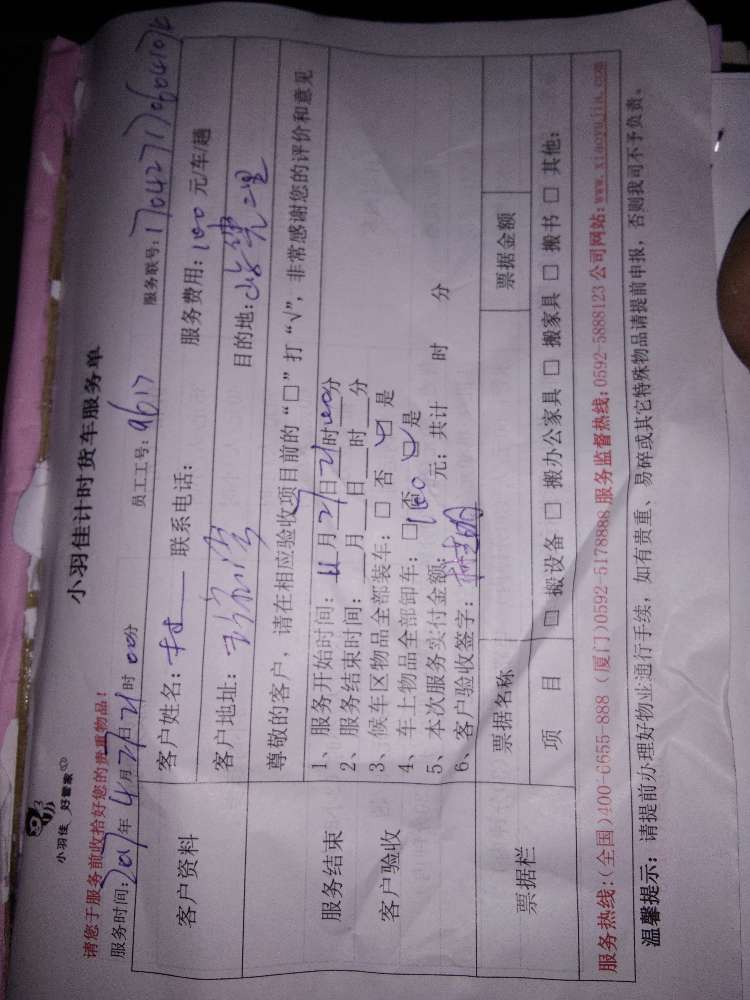 小羽佳 好管家
小羽佳计时货车服务单
请您于服务前收拾好您的贵重物品!
服务时间: 年4月21日21时00分 员工工号: 9617 服务联号: 17042717060410
客户资料
客户姓名: 联系电话: 服务费用: 100元/车/趟
客户地址: 目的地:
服务结束
客户验收
尊敬的客户,请在相应验收项目前的“□”打“√”,非常感谢您的评价和意见
1、服务开始时间: 月21日21时00分
2、服务结束时间:___月___日___时___分
3、候车区物品全部装车: □ 否 □ 是
4、车上物品全部卸车: □ 否 □ 是
5、本次服务实付金额: 100元; 共计 时 分
6、客户验收签字:
票据栏
票据名称 票据金额
项 目 □ 搬设备 □ 搬办公家具 □ 搬家具 □ 搬书 □ 其他:
服务热线:(全国)400-6655-888 (厦门)0592-5178888 服务监督热线:0592-5888123 公司网站:www.xiaoyujia.com
温馨提示: 请提前办理好物业通行手续, 如有贵重、易碎或其它特殊物品请提前申报, 否则我司不予负责。